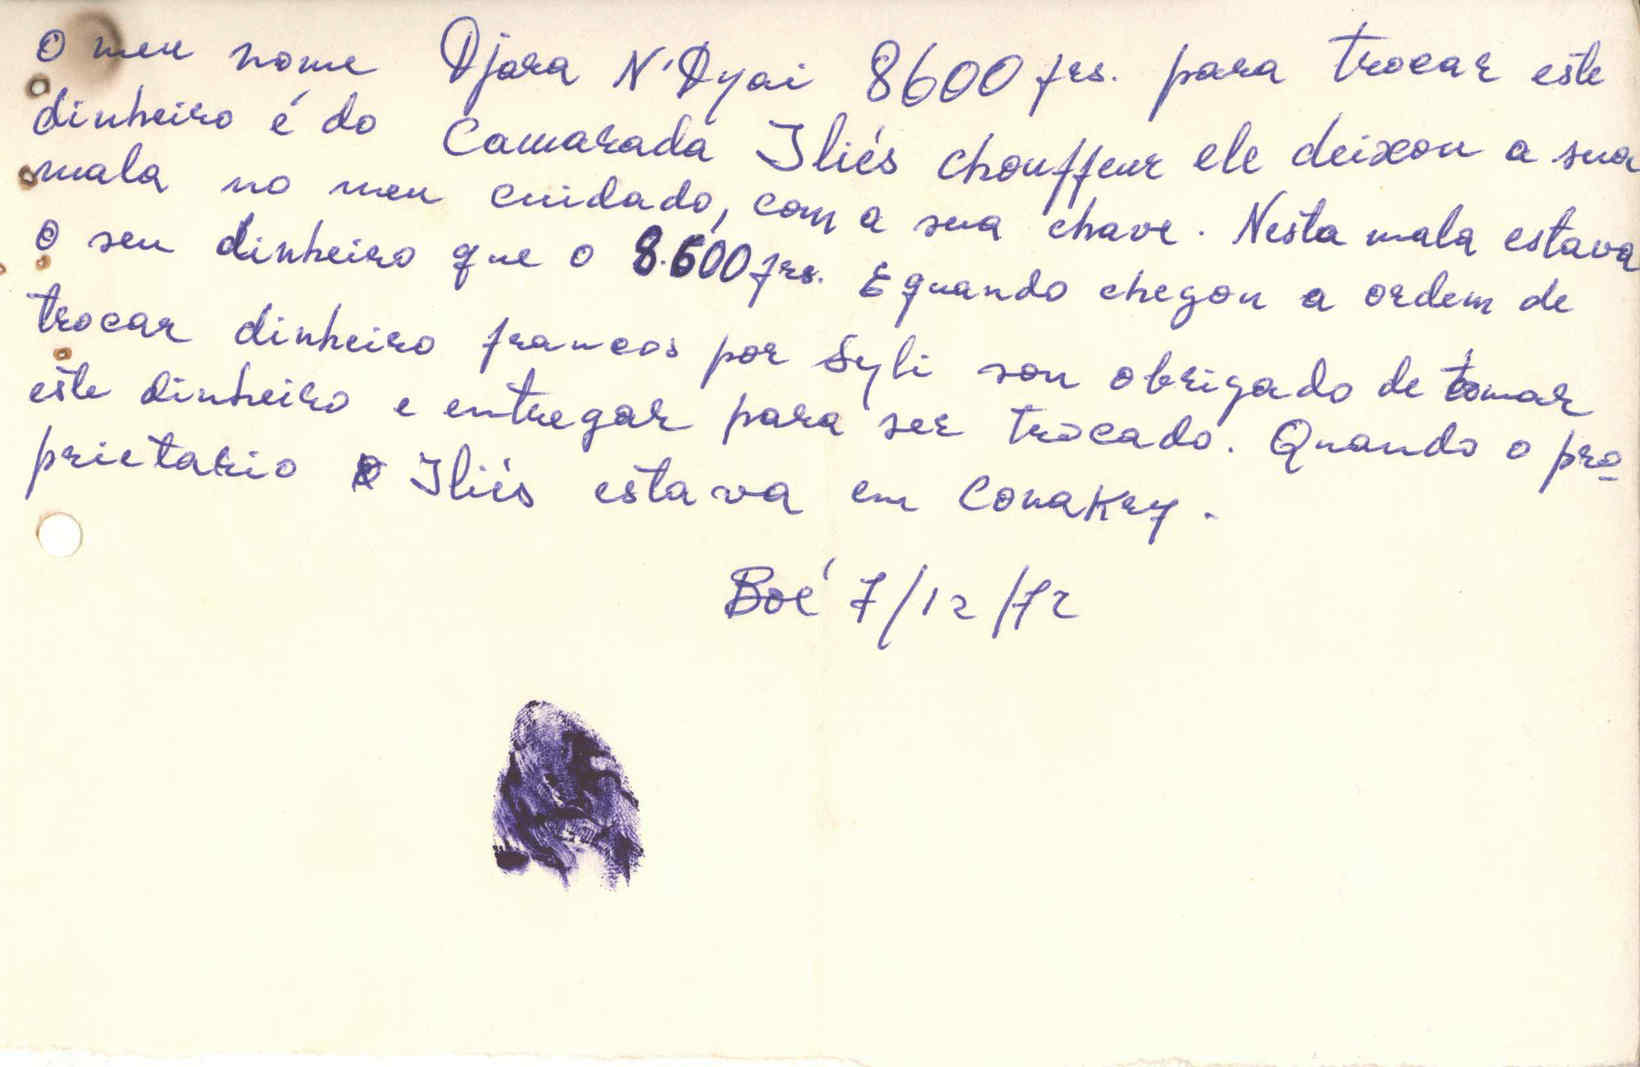 O meu nome Djara N'Dyai 8600 frs. para trocar este
dinheiro é do Camarada Iliés chouffeur ele deixou a sua
mala no meu cuidado, com a sua chave. Nesta mala estava
O seu dinheiro que o 8.600 frs. E quando chegou a ordem de
trocar dinheiro francos por Syli sou obrigado de tomar
este dinheiro e entregar para ser trocado. Quando o pro-
prietario Iliés estava em Conakry.
Boé 7/12/72